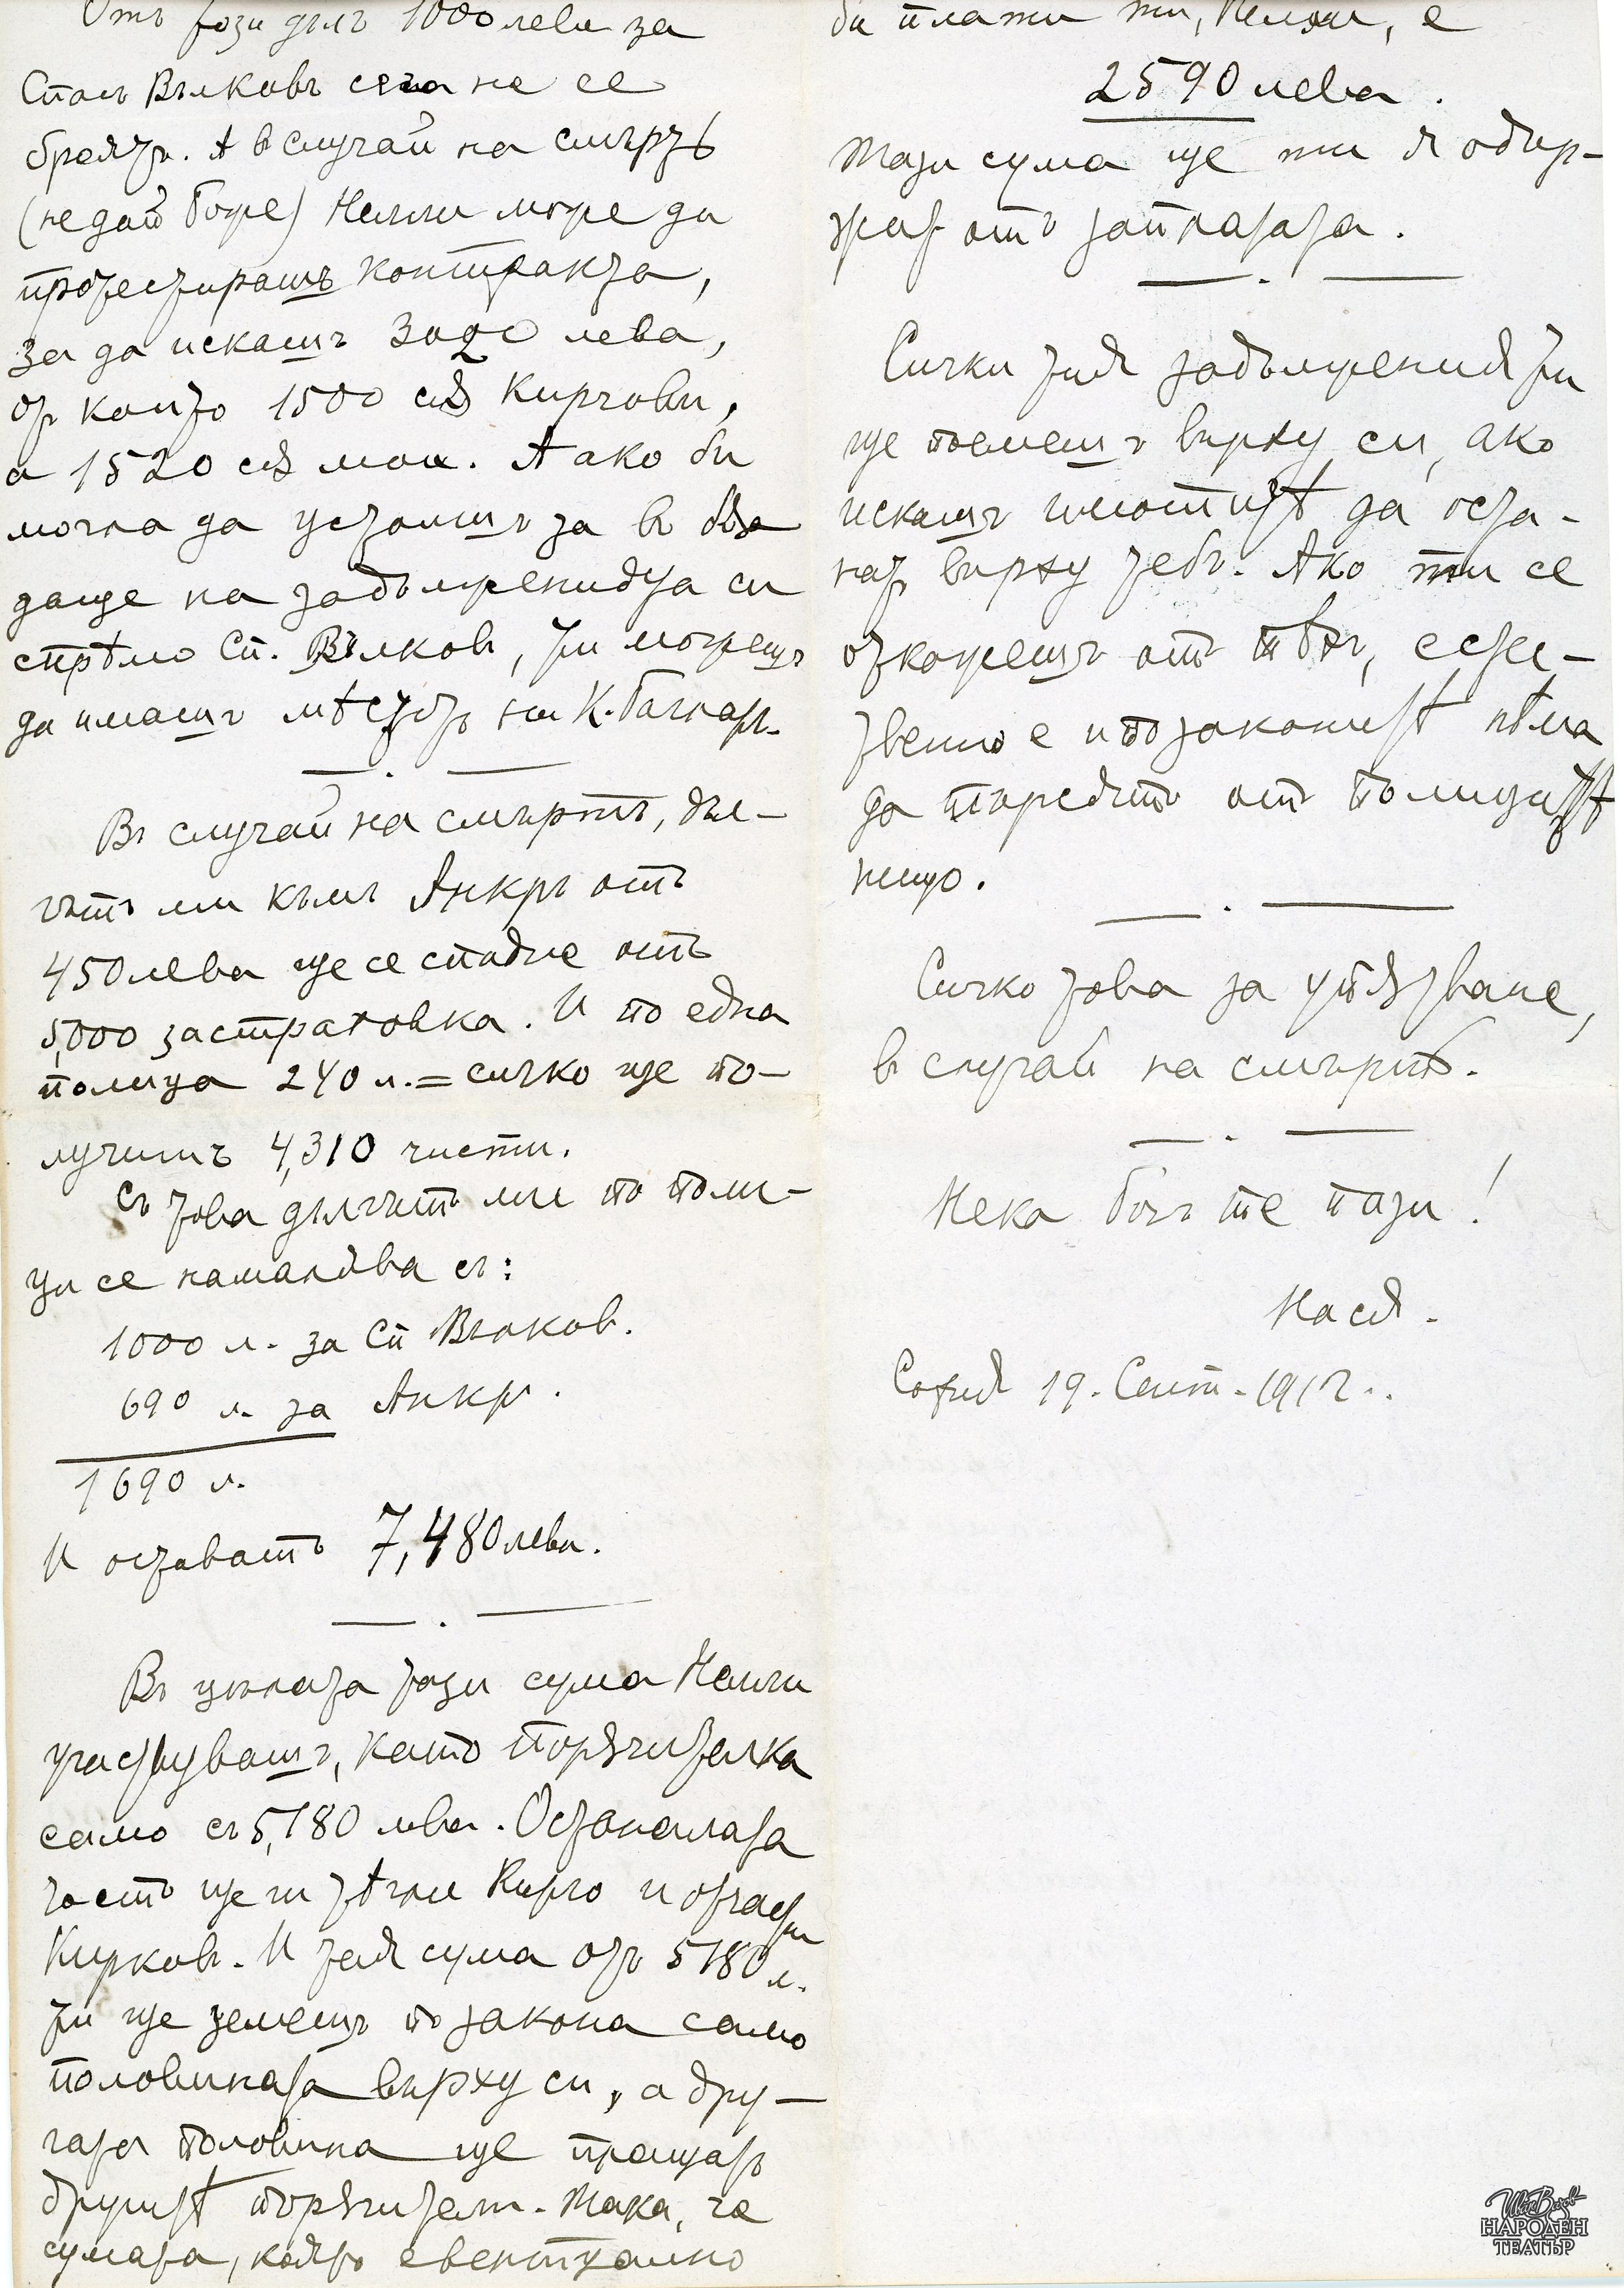 Отъ този дългъ 1000 лева за
Спасъ Вълковъ сега не се
броятъ. А в случай на смърть
(не дай боже) Нелли може да
протестирашъ контракта,
за да искашъ 3020 лева,
от които 1500 сѫ Кирчови,
а 1520 сѫ мои. А ако би
могла да устоишъ за в бѫ
даще на задълженията си
спрѣмо Сп. Вълков, ти можешъ
да имашъ мѣстотъ на К.
Въ случай на смъртъ, дъл-
гътъ ми къмъ Анкръ отъ
450 лева ще се спадне отъ
5,000 застраховка. И по една
полица 240 л. = сичко ще по-
лучишъ 4,310 чисти.
Съ това дългътъ ми по поли-
ци се намалява съ:
1000 л. за Сп Вълков.
690 л. за Анкр.
1690 л.
И оставатъ 7,480 лева.
Въ цѣлата тази сума Нелли
участвувашъ, като порѫчителка
само съ 5,180 лева. Останалата
часть ще ги тѣгли Кирчо и отчасти
Кирков. И тая сума отъ 5180 л.
ти ще земешъ по закона само
половината върху си, а дру-
гата половина ще плащатъ
другитѣ порѫчители. Така, че
сумата, която евентуално
би платила ти, Нелли, е
2590 лева.
Тази сума ще ти я одър-
жат отъ заплатата.
Сички тия задължения ти
ще поемешъ върху си, ако
искашъ имотитѣ да оста-
нат върху тебъ. Ако ти се
откажешъ от тѣхъ, есте-
ствено е и по законитѣ нѣма
да теглятъ от полицитѣ
нищо.
Сичко това за упѫтване,
в случай на смърть.
Нека богъ те пази!
Нася.
София 19. Септ. 1912..
Иван Вазов
НАРОДЕН
ТЕАТЪР